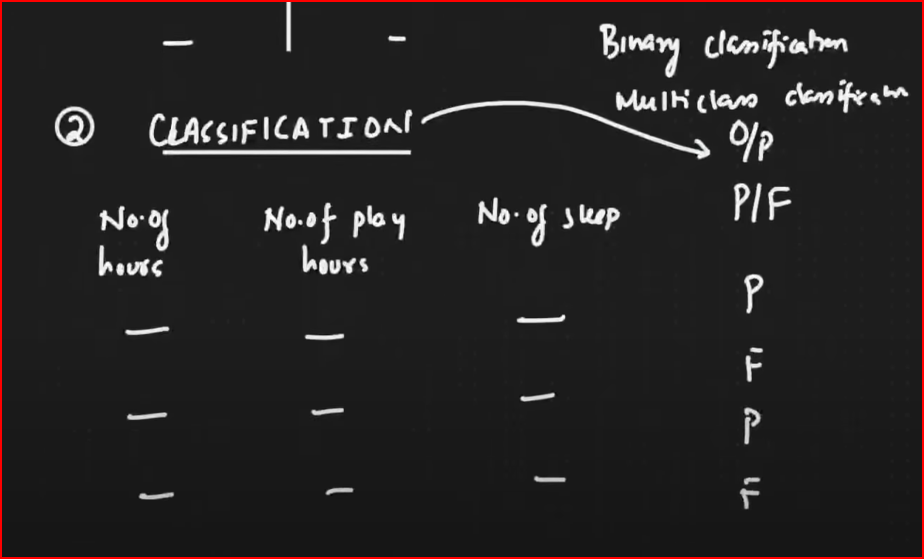 Binary classification
Multiclass classification
② CLASSIFICATION
O/P
No. of hours
No. of play hours
No. of sleep
P/F
P
F
P
F